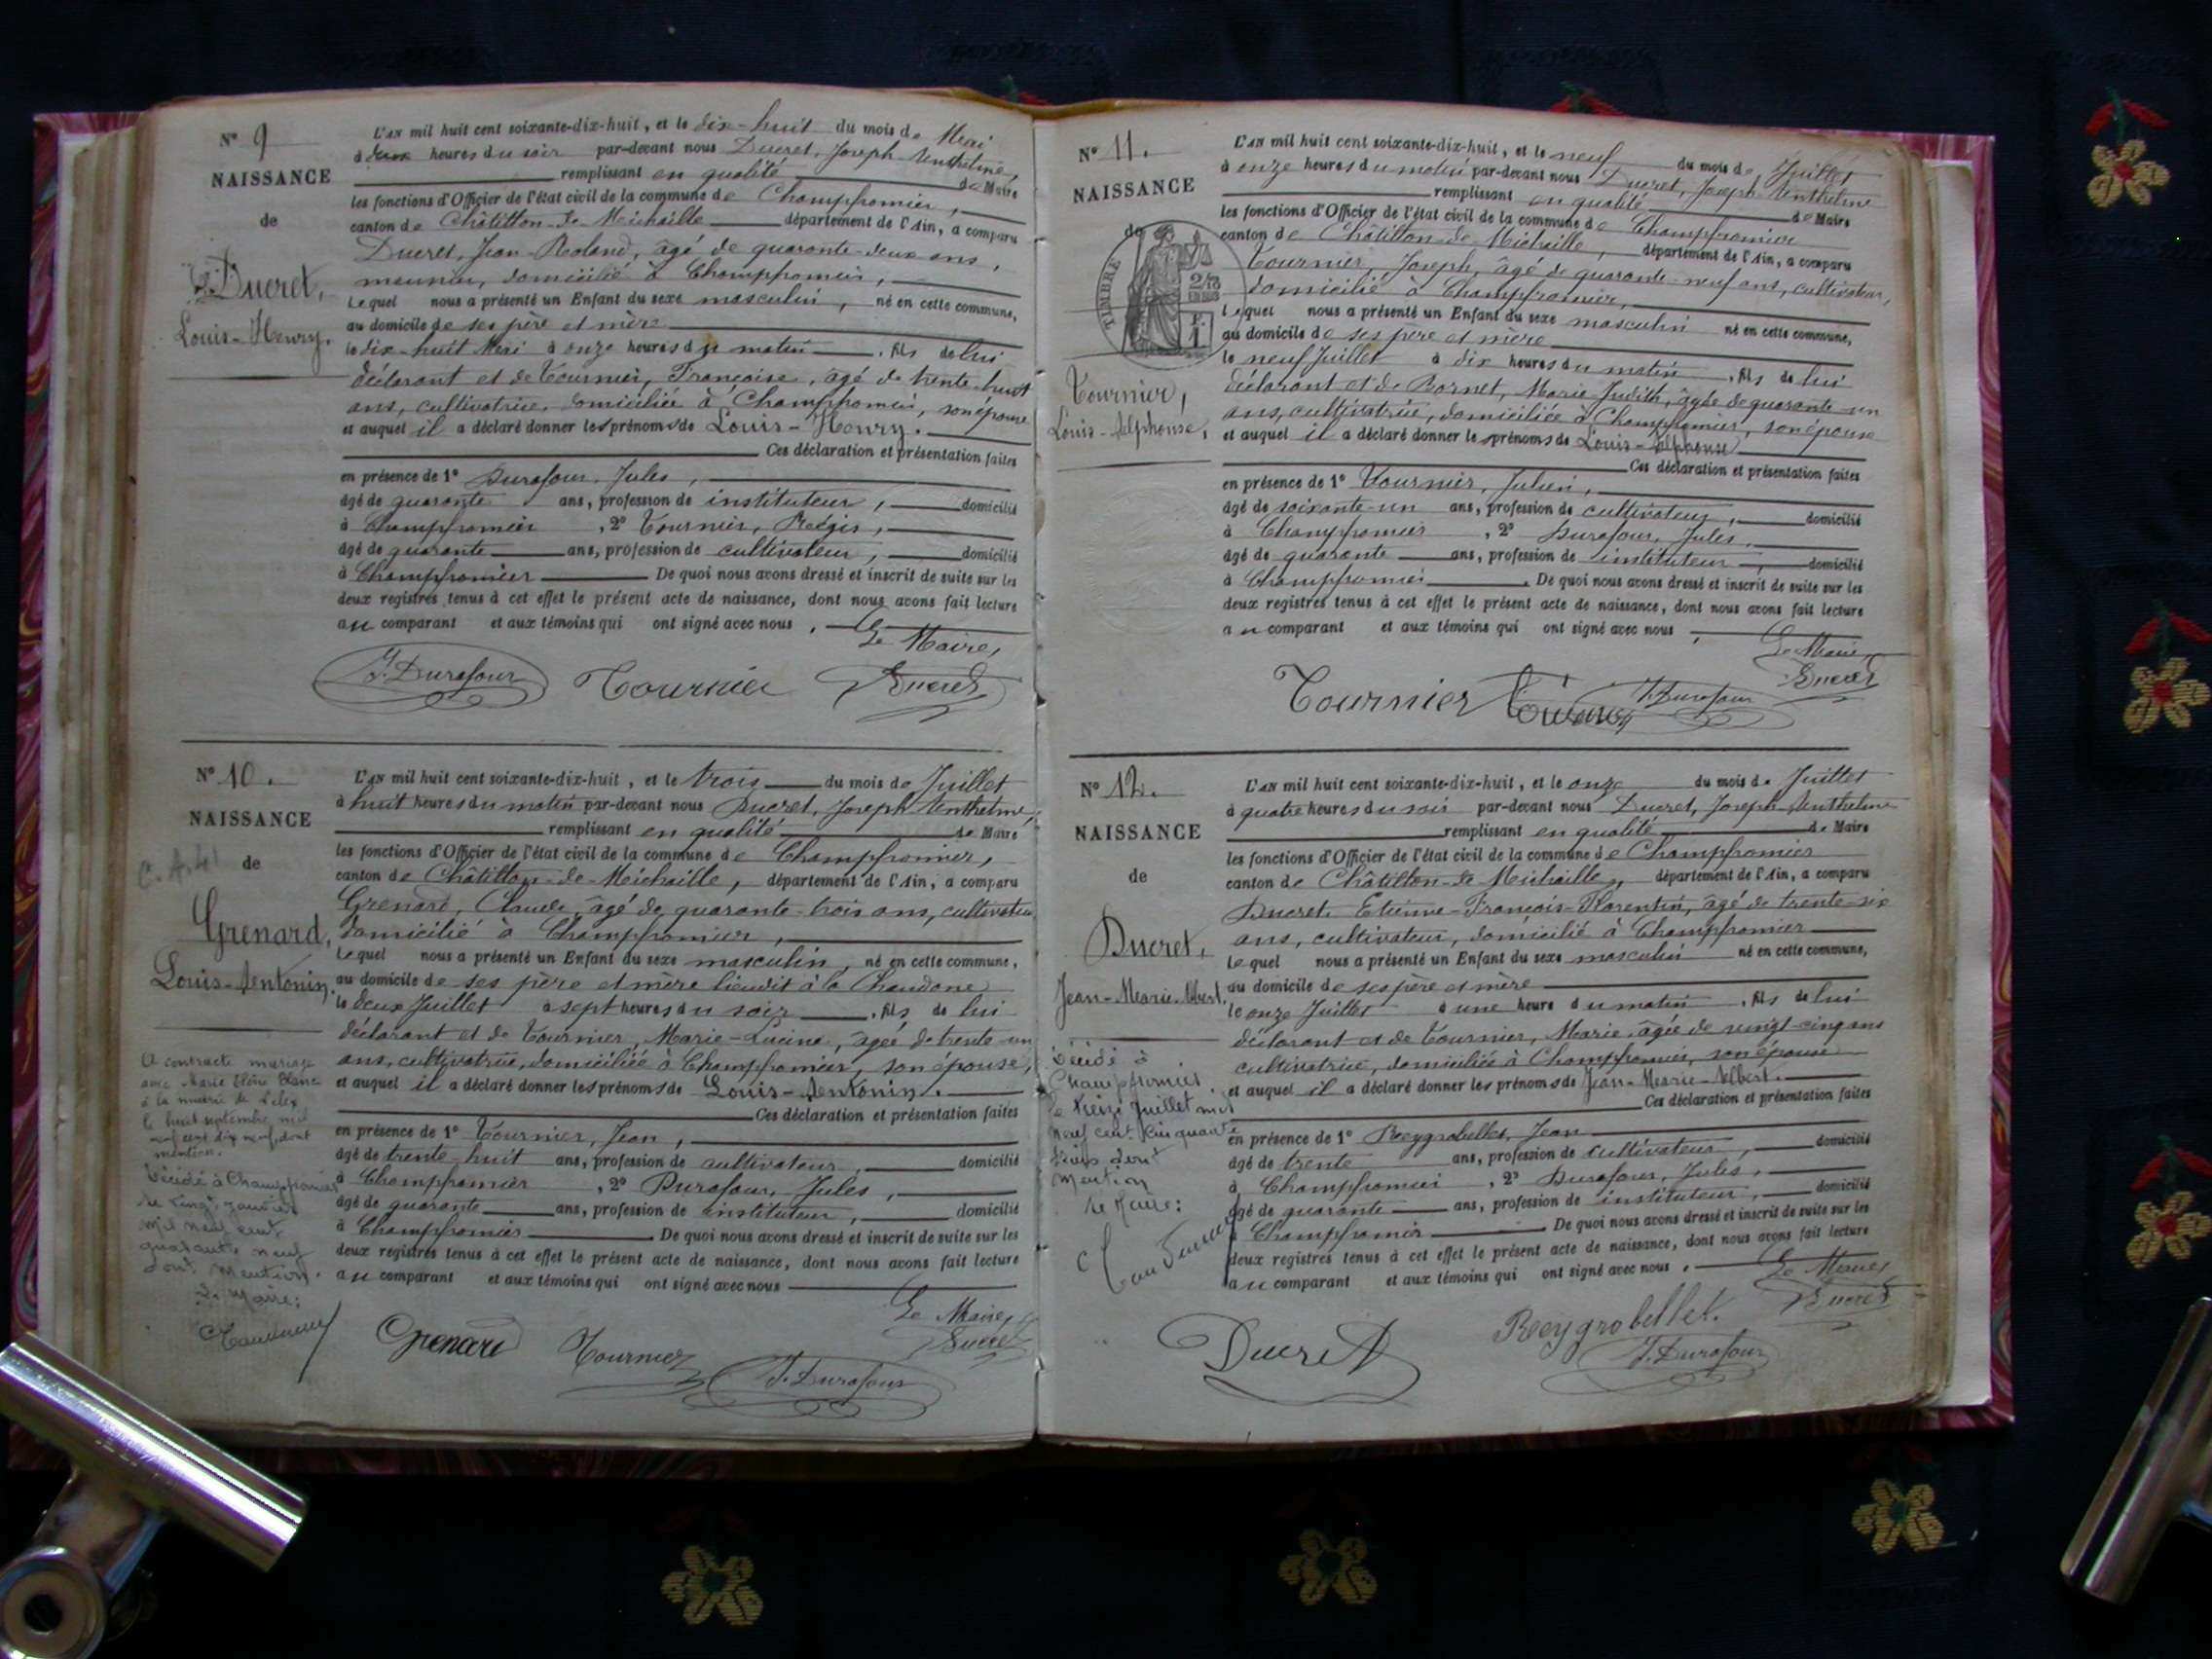 N° 9
NAISSANCE
de
Ducret,
Louis-Henry.
L'an mil huit cent soixante-dix-huit, et le dix-huit du mois de Mai
à deux heures du soir par-devant nous Ducret, Joseph Anthelme,
remplissant en qualité de Maire
les fonctions d'Officier de l'état civil de la commune de Champfromier,
canton de Châtillon-de-Michaille département de l'Ain, a comparu
Ducret, Jean-Roland, âgé de quarante-deux ans,
meunier, domicilié à Champfromier,
lequel nous a présenté un Enfant du sexe masculin, né en cette commune,
au domicile de ses père et mère
le dix-huit Mai à onze heures du matin, fils de lui
déclarant et de Tournier, Françoise, âgé de trente-huit
ans, cultivatrice, domiciliée à Champfromier, son épouse
et auquel il a déclaré donner les prénoms de Louis-Henry.
Ces déclaration et présentation faites
en présence de 1° Durafour, Jules,
âgé de quarante ans, profession de instituteur, domicilié
à Champfromier, 2° Tournier, Régis,
âgé de quarante ans, profession de cultivateur, domicilié
à Champfromier De quoi nous avons dressé et inscrit de suite sur les
deux registres tenus à cet effet le présent acte de naissance, dont nous avons fait lecture
au comparant et aux témoins qui ont signé avec nous,
Le Maire,
J. Durafour Tournier Ducret
N° 10.
NAISSANCE
de
Grenard,
Louis-Antonin.
A contracté mariage
avec Marie
à la mairie de Lelex
le huit septembre mil
neuf cent dix neuf, dont
mention.
Décédé à Champfromier
le vingt janvier
mil neuf cent
quarante neuf
dont mention.
Le Maire:
L'an mil huit cent soixante-dix-huit, et le trois du mois de Juillet
à huit heures du matin par-devant nous Ducret, Joseph Anthelme,
remplissant en qualité de Maire
les fonctions d'Officier de l'état civil de la commune de Champfromier,
canton de Châtillon-de-Michaille, département de l'Ain, a comparu
Grenard, Claude, âgé de quarante-trois ans, cultivateur
domicilié à Champfromier,
lequel nous a présenté un Enfant du sexe masculin, né en cette commune,
au domicile de ses père et mère lieudit à la Chaudane
le deux Juillet à sept heures du soir, fils de lui
déclarant et de Tournier, Marie-Lucine, âgée de trente-un
ans, cultivatrice, domiciliée à Champfromier, son épouse,
et auquel il a déclaré donner les prénoms de Louis-Antonin.
Ces déclaration et présentation faites
en présence de 1° Tournier, Jean,
âgé de trente-huit ans, profession de cultivateur, domicilié
à Champfromier, 2° Durafour, Jules,
âgé de quarante ans, profession de instituteur, domicilié
à Champfromier. De quoi nous avons dressé et inscrit de suite sur les
deux registres tenus à cet effet le présent acte de naissance, dont nous avons fait lecture
au comparant et aux témoins qui ont signé avec nous
Le Maire,
Grenard Tournier J. Durafour Ducret
N° 11.
NAISSANCE
de
TIMBRE
Tournier,
Louis-Alphonse,
L'an mil huit cent soixante-dix-huit, et le neuf du mois de Juillet
à onze heures du matin par-devant nous Ducret, Joseph Anthelme
remplissant en qualité de Maire
les fonctions d'Officier de l'état civil de la commune de Champfromier
canton de Châtillon-de-Michaille, département de l'Ain, a comparu
Tournier, Joseph, âgé de quarante-neuf ans, cultivateur,
domicilié à Champfromier,
lequel nous a présenté un Enfant du sexe masculin né en cette commune,
au domicile de ses père et mère
le neuf Juillet à dix heures du matin, fils de lui
déclarant et de Bornet, Marie-Judith, âgée de quarante-un
ans, cultivatrice, domiciliée à Champfromier, son épouse
et auquel il a déclaré donner les prénoms de Louis-Alphonse
Ces déclaration et présentation faites
en présence de 1° Tournier, Julien,
âgé de soixante-un ans, profession de cultivateur, domicilié
à Champfromier, 2° Durafour, Jules,
âgé de quarante ans, profession de instituteur, domicilié
à Champfromier. De quoi nous avons dressé et inscrit de suite sur les
deux registres tenus à cet effet le présent acte de naissance, dont nous avons fait lecture
au comparant et aux témoins qui ont signé avec nous,
Le Maire,
Tournier Tournier J. Durafour Ducret
N° 12.
NAISSANCE
de
Ducret,
Jean-Marie-Albert.
Décédé à
Champfromier
le treize Juillet mil
neuf cent cinquante
trois dont
mention
Le Maire:
L'an mil huit cent soixante-dix-huit, et le onze du mois de Juillet
à quatre heures du soir par-devant nous Ducret, Joseph Anthelme
remplissant en qualité de Maire
les fonctions d'Officier de l'état civil de la commune de Champfromier
canton de Châtillon-de-Michaille, département de l'Ain, a comparu
Ducret, Etienne-François-Florentin, âgé de trente-six
ans, cultivateur, domicilié à Champfromier
lequel nous a présenté un Enfant du sexe masculin né en cette commune,
au domicile de ses père et mère
le onze Juillet à une heure du matin, fils de lui
déclarant et de Tournier, Marie, âgée de vingt-cinq ans
cultivatrice, domiciliée à Champfromier, son épouse
et auquel il a déclaré donner les prénoms de Jean-Marie-Albert.
Ces déclaration et présentation faites
en présence de 1° Reygrobellet, Jean
âgé de trente ans, profession de cultivateur, domicilié
à Champfromier, 2° Durafour, Jules,
âgé de quarante ans, profession de instituteur, domicilié
à Champfromier. De quoi nous avons dressé et inscrit de suite sur les
deux registres tenus à cet effet le présent acte de naissance, dont nous avons fait lecture
au comparant et aux témoins qui ont signé avec nous.
Le Maire,
Ducret Reygrobellet. J. Durafour Ducret